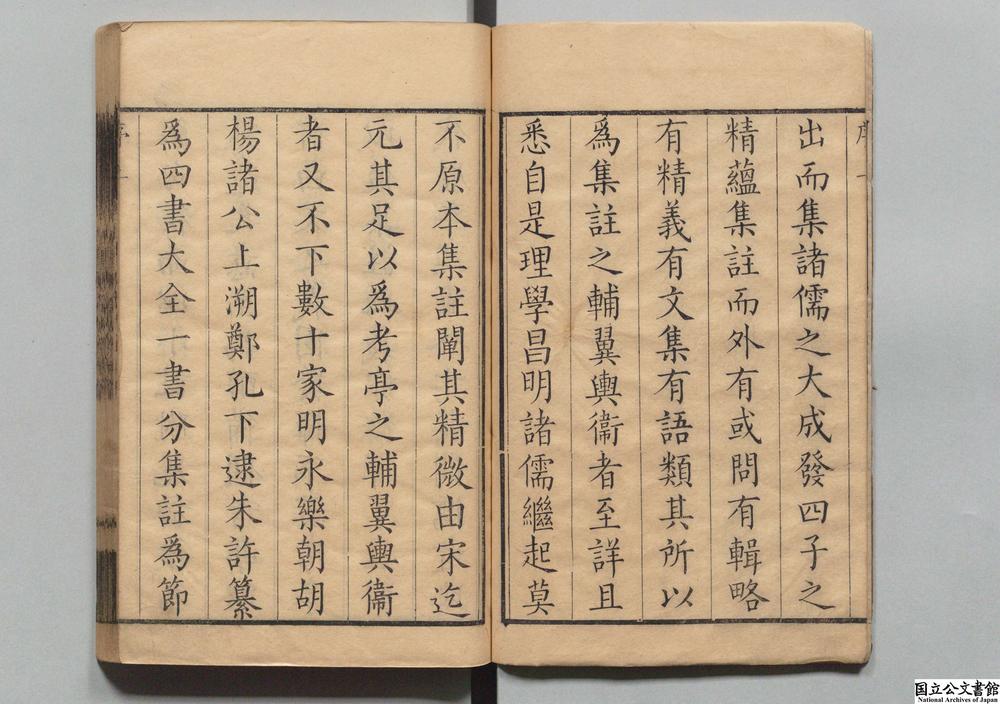 出而集諸儒之大成發四子之
精蘊集註而外有或問有輯略
有精義有文集有語類其所以
爲集註之輔翼輿衞者至詳且
悉自是理學昌明諸儒繼起莫
不原本集註闡其精微由宋迄
元其足以爲考亭之輔翼輿衞
者又不下數十家明永樂朝胡
楊諸公上溯鄭孔下逮朱許纂
爲四書大全一書分集註爲節
国立公文書館
National Archives of Japan